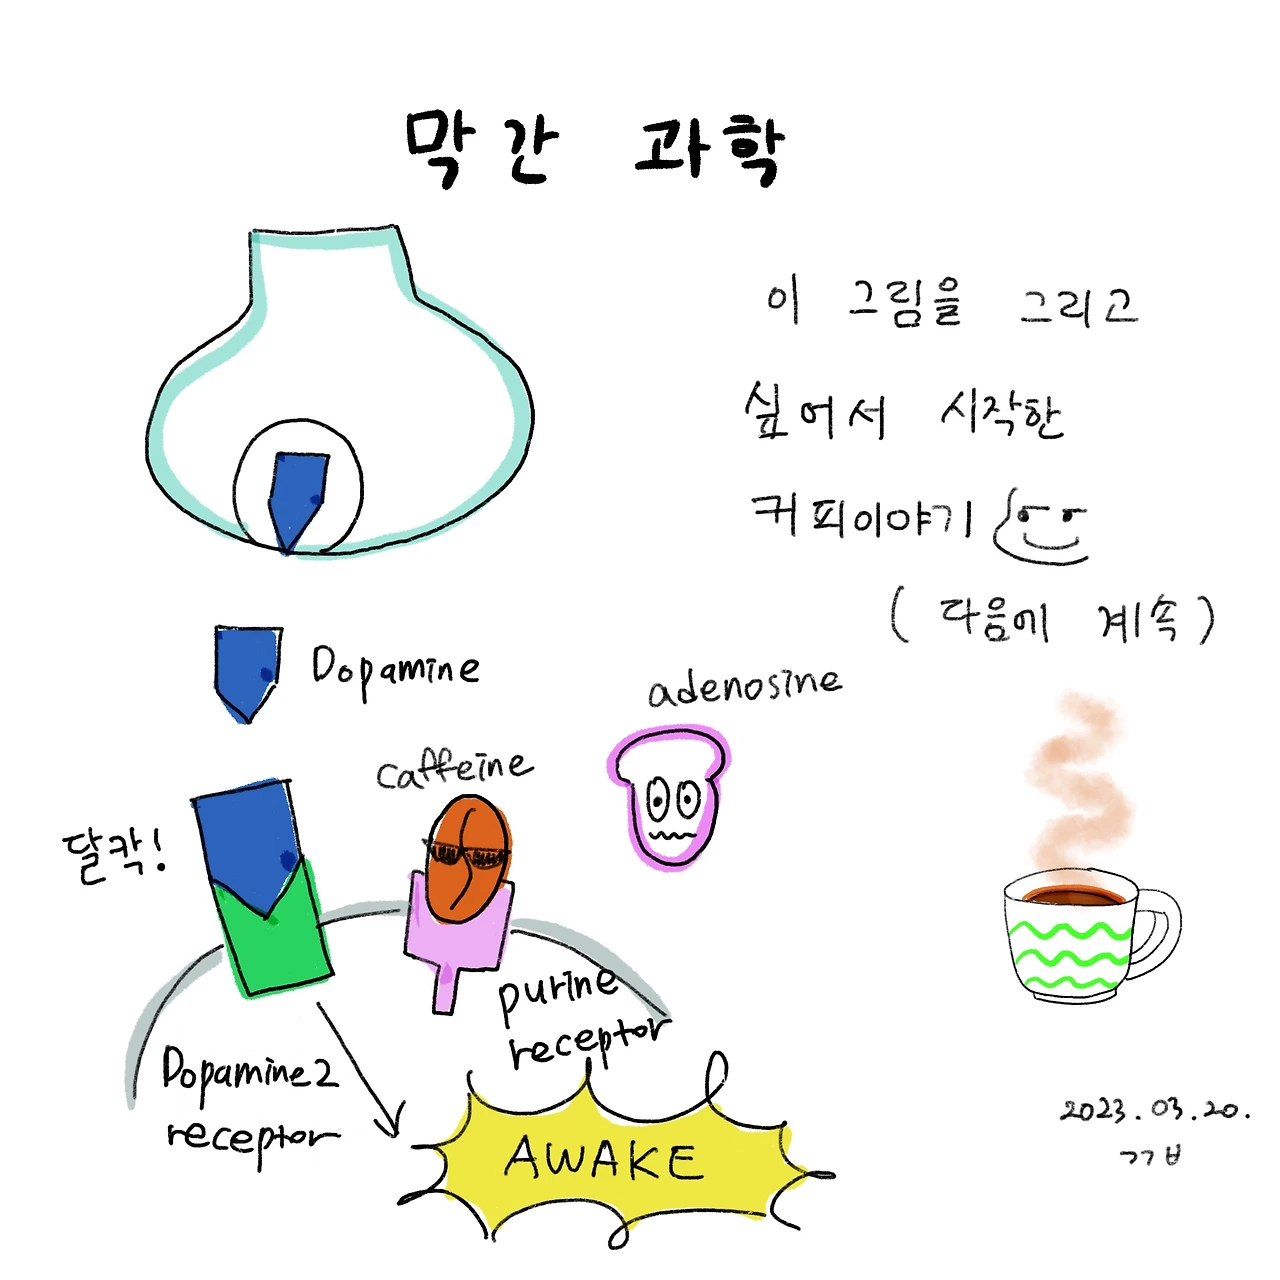 막간 과학
이 그림을 그리고
싶어서 시작한
커피이야기
(다음에 계속)
Dopamine
adenosine
caffeine
달칵!
purine
receptor
Dopamine2
receptor
AWAKE
2023.03.20.
ㄱㄱㅂ